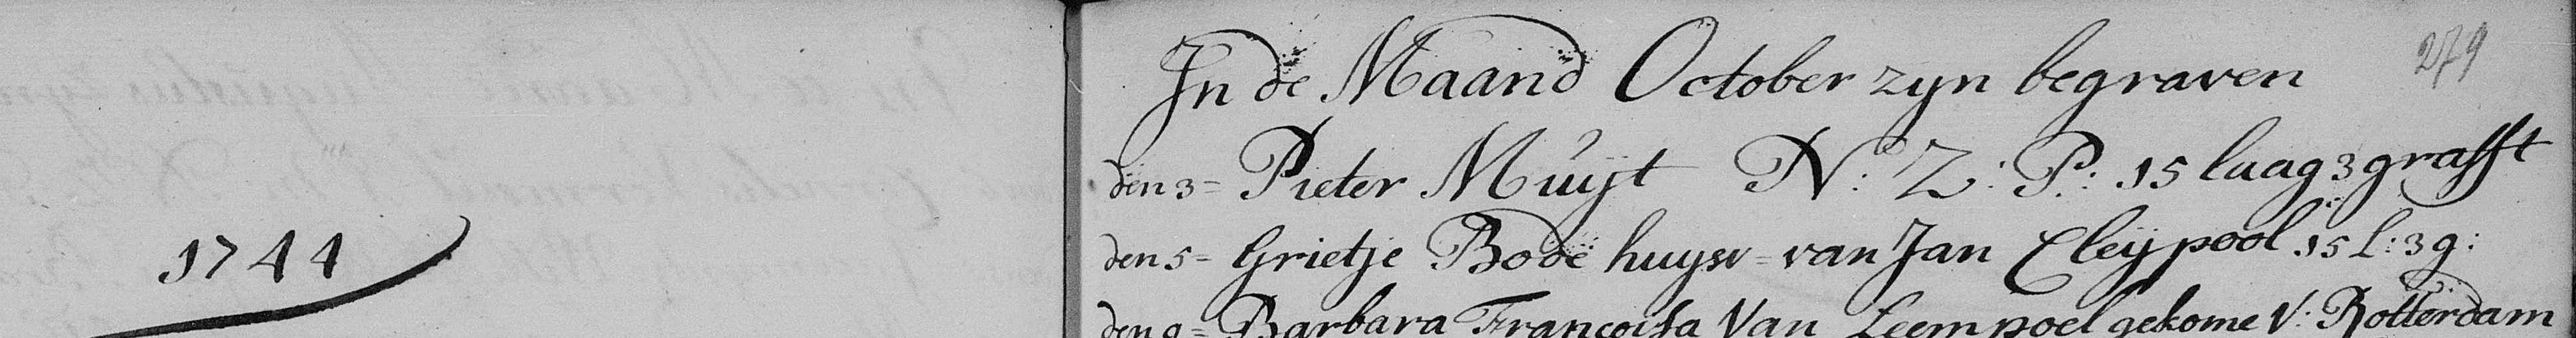 1744
279
In de Maand October zyn begraven
den 3 = Pieter Muijt N: Z: P: 15 laag 3 grafft
den 5 = Grietje Bode huysv = van Jan Cleijpool 15 l: 3 g:
den 9 = Barbara Francoisa Van Leempoel gekome V: Rotterdam